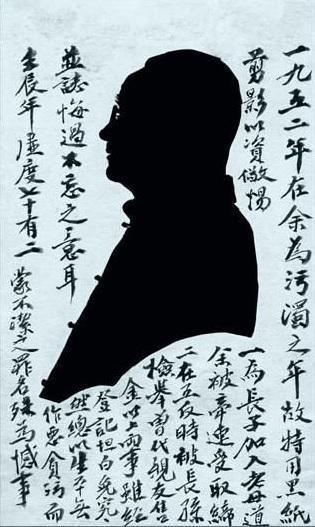 一九五二年在余為污濁之年故特用黑紙
剪影以資儆惕
並誌悔過不忘之意耳
壬辰年虛度七十有二
一為長子加入老母道
余被牽連受取締
二在五反時被長孫
檢舉曾代親友售
金以上兩事雖經
登記坦白免究
然總以生平無
作惡貪污而
蒙不潔之罪名殊為憾事